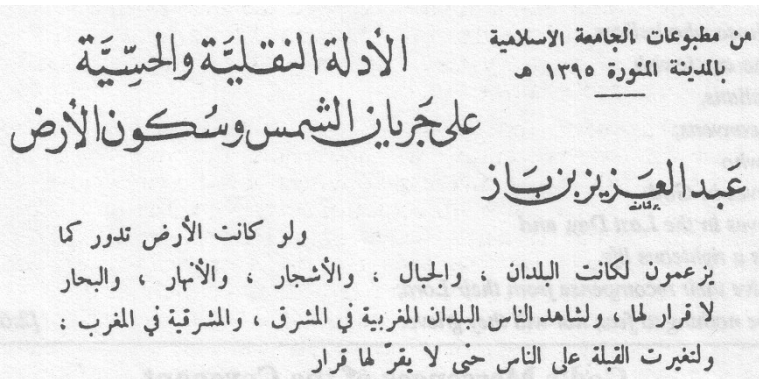 من مطبوعات الجامعة الاسلامية
بالمدينة المنورة ١٣٩٥ هـ
الأدلة النقليَّة والحسِّيَّة
على جَريان الشمس وسُكون الأرض
عَبد العَزيز بن بَاز
ولو كانت الأرض تدور كما
يزعمون لكانت البلدان ، والجبال ، والأشجار ، والأنهار ، والبحار
لا قرار لها . ولشاهد الناس البلدان المغربية في المشرق ، والمشرقية في المغرب :
ولتغيرت القبلة على الناس حتى لا يقرّ لها قرار